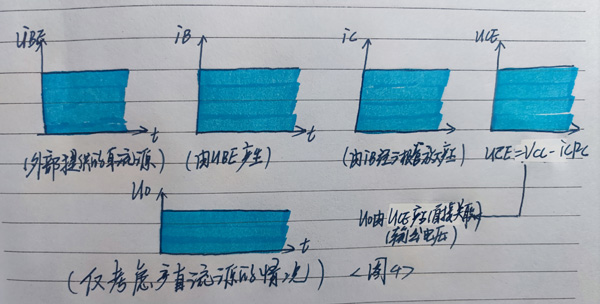 uBE iB iC uCE
t t t t
(外部提供的直流源) (由uBE产生) (由iB经三极管放大产生) uCE=VCC-iCRC
uo
t
uo由uCE产生(直接关联)
(输出电压)
(仅考虑了直流源的情况) <图4>